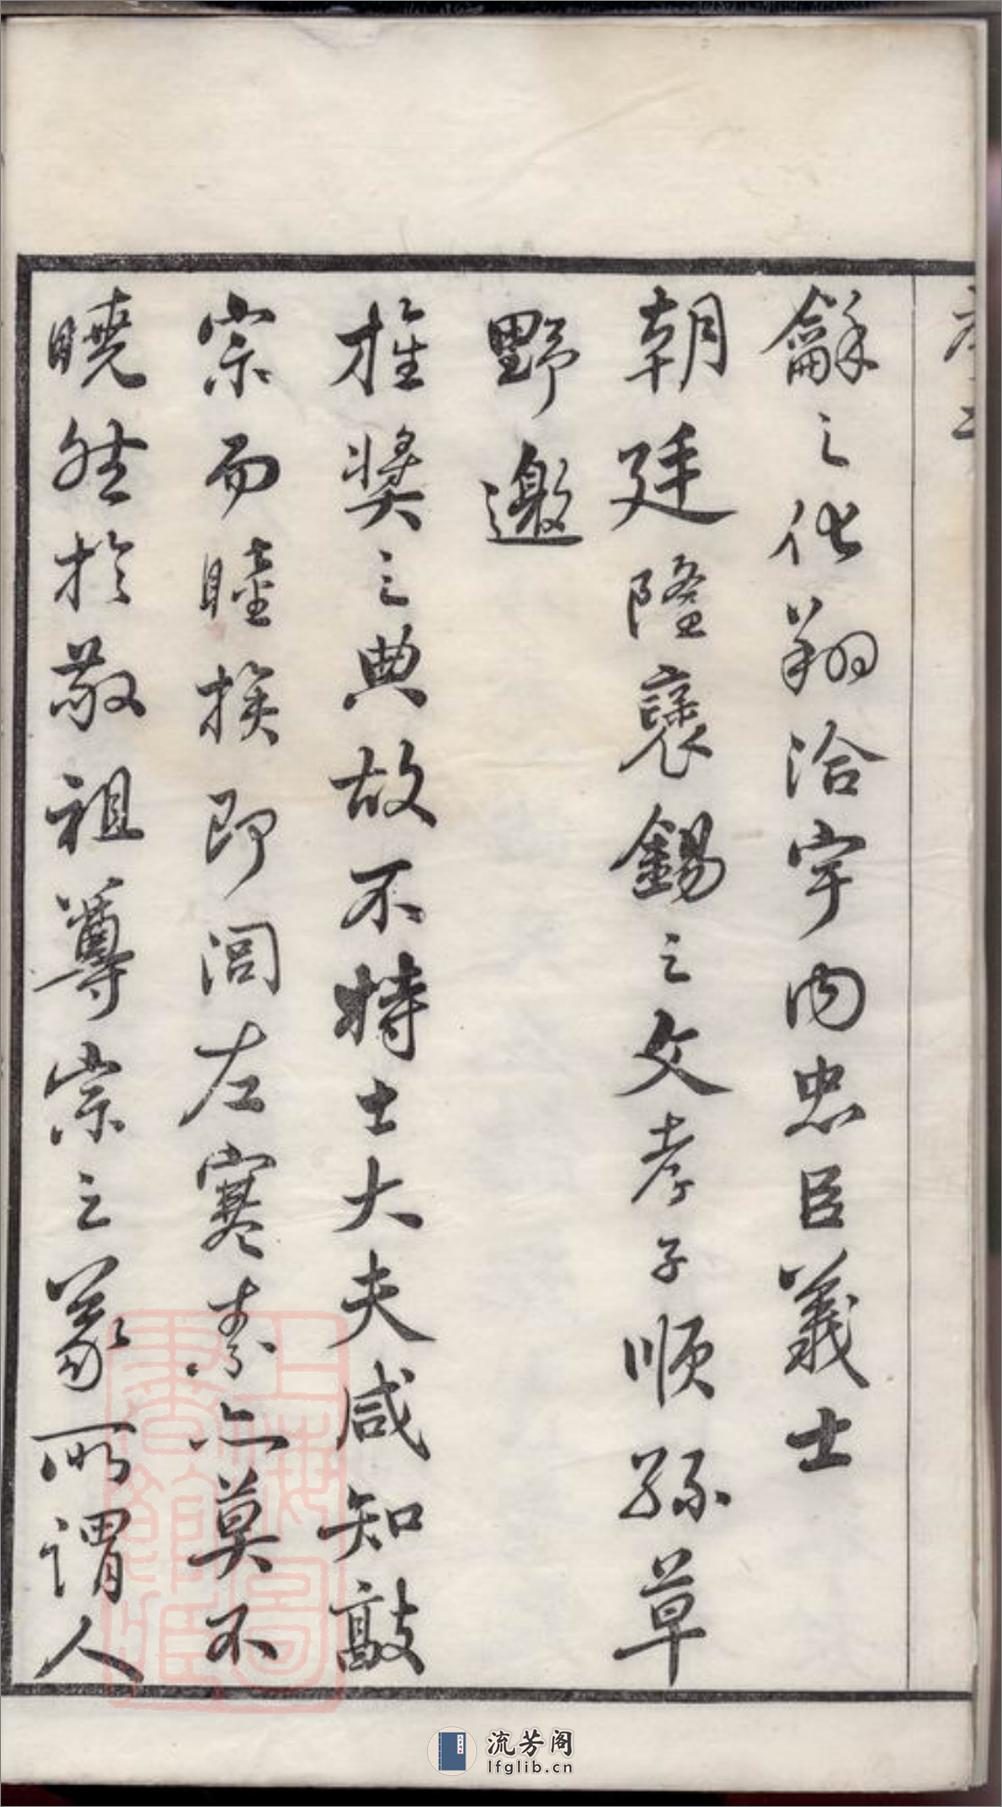 龢之化翔洽宇内忠臣義士
朝廷隆褒錫之文孝子順孫草
野邀
推奬之典故不特士大夫咸知敦
宗而睦族即閭左寒素亦莫不
曉然於敬祖尊宗之義所謂人
上海圖
書館藏
流芳阁
lfglib.cn